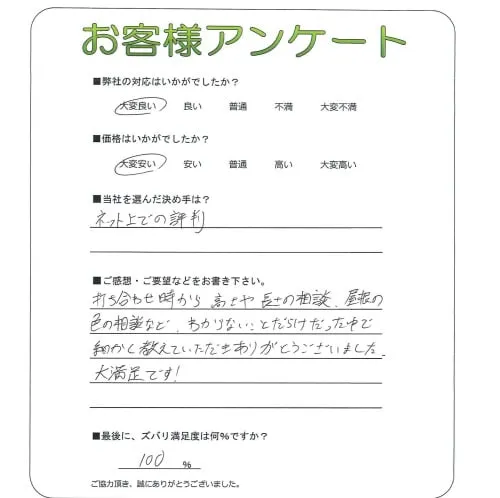 お客様アンケート
■弊社の対応はいかがでしたか?
大変良い 良い 普通 不満 大変不満
■価格はいかがでしたか?
大変安い 安い 普通 高い 大変高い
■当社を選んだ決め手は?
ネット上での評判
■ご感想・ご要望などをお書き下さい。
打ち合わせ時から 高さや長さの相談、屋根の
色の相談など、わからないことだらけだった中で
細かく教えていただきありがとうございました。
大満足です!
■最後に、ズバリ満足度は何%ですか?
100 %
ご協力頂き、誠にありがとうございました。